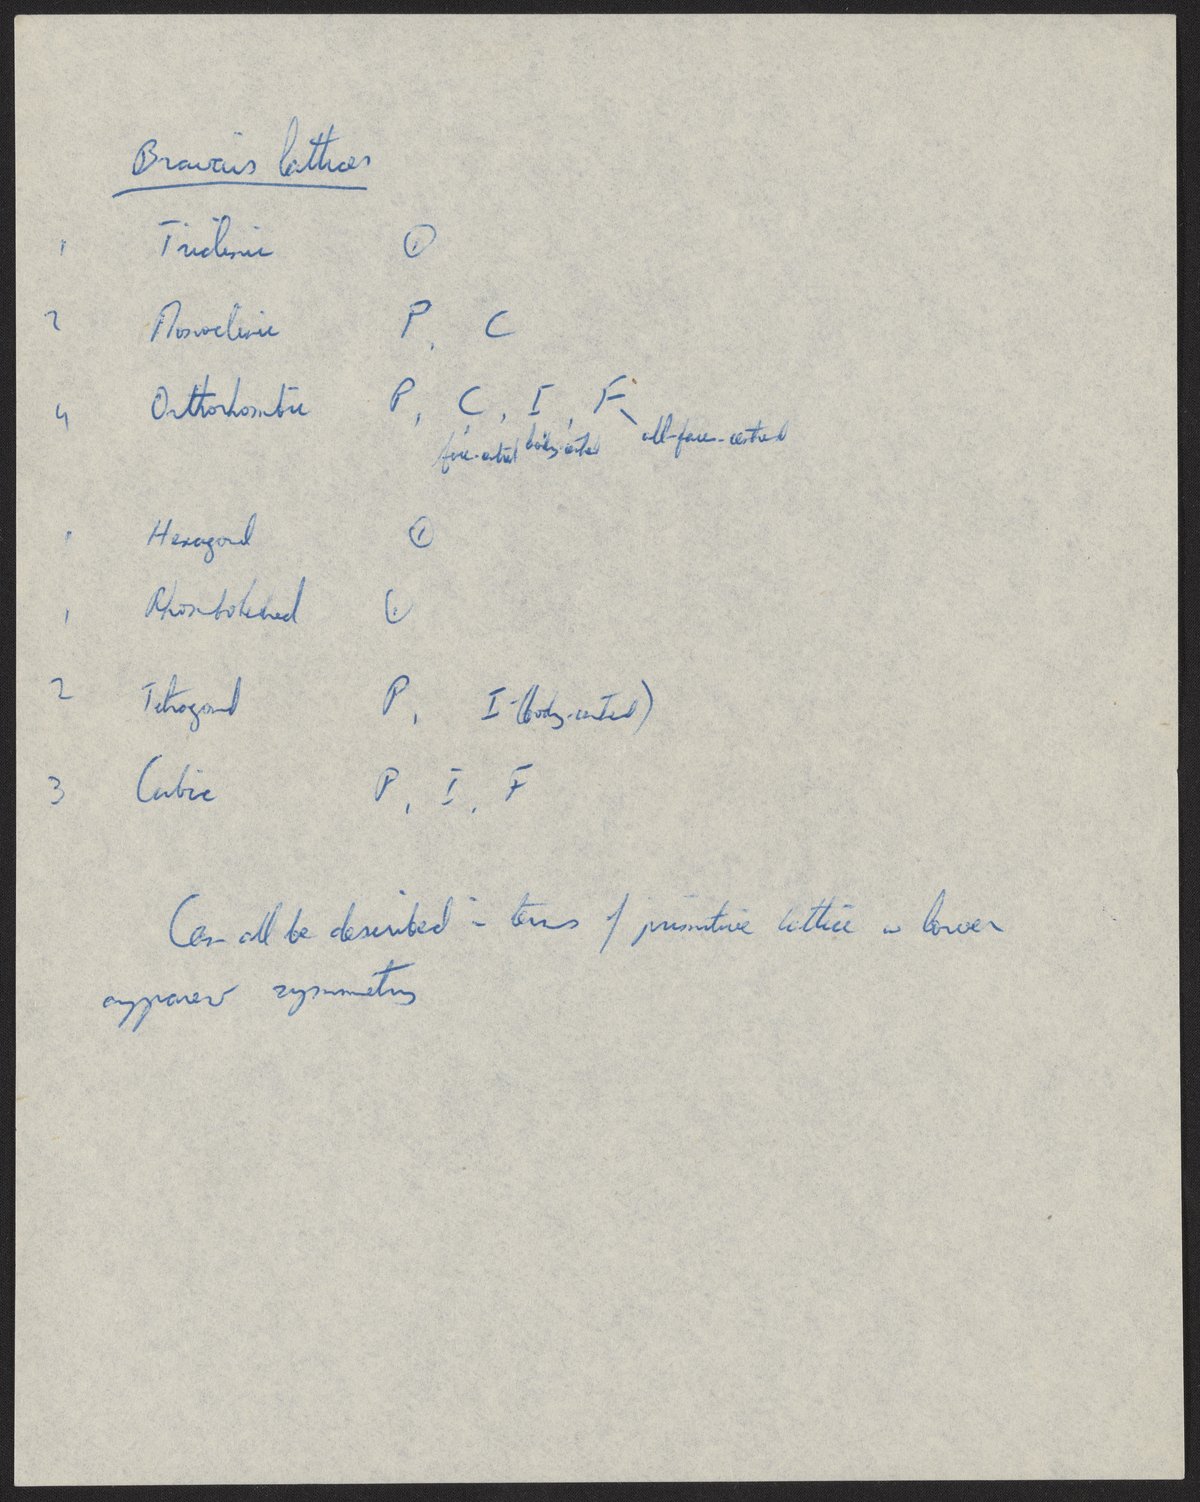 Bravais lattices
1 Triclinic ①
2 Monoclinic P, C
4 Orthorhombic P, C, I, F
face-centred body-centred all-face-centred
1 Hexagonal ①
1 Rhombohedral ①
2 Tetragonal P, I-(body-centred)
3 Cubic P, I, F
Can all be described in terms of primitive lattice w lower
apparent symmetry